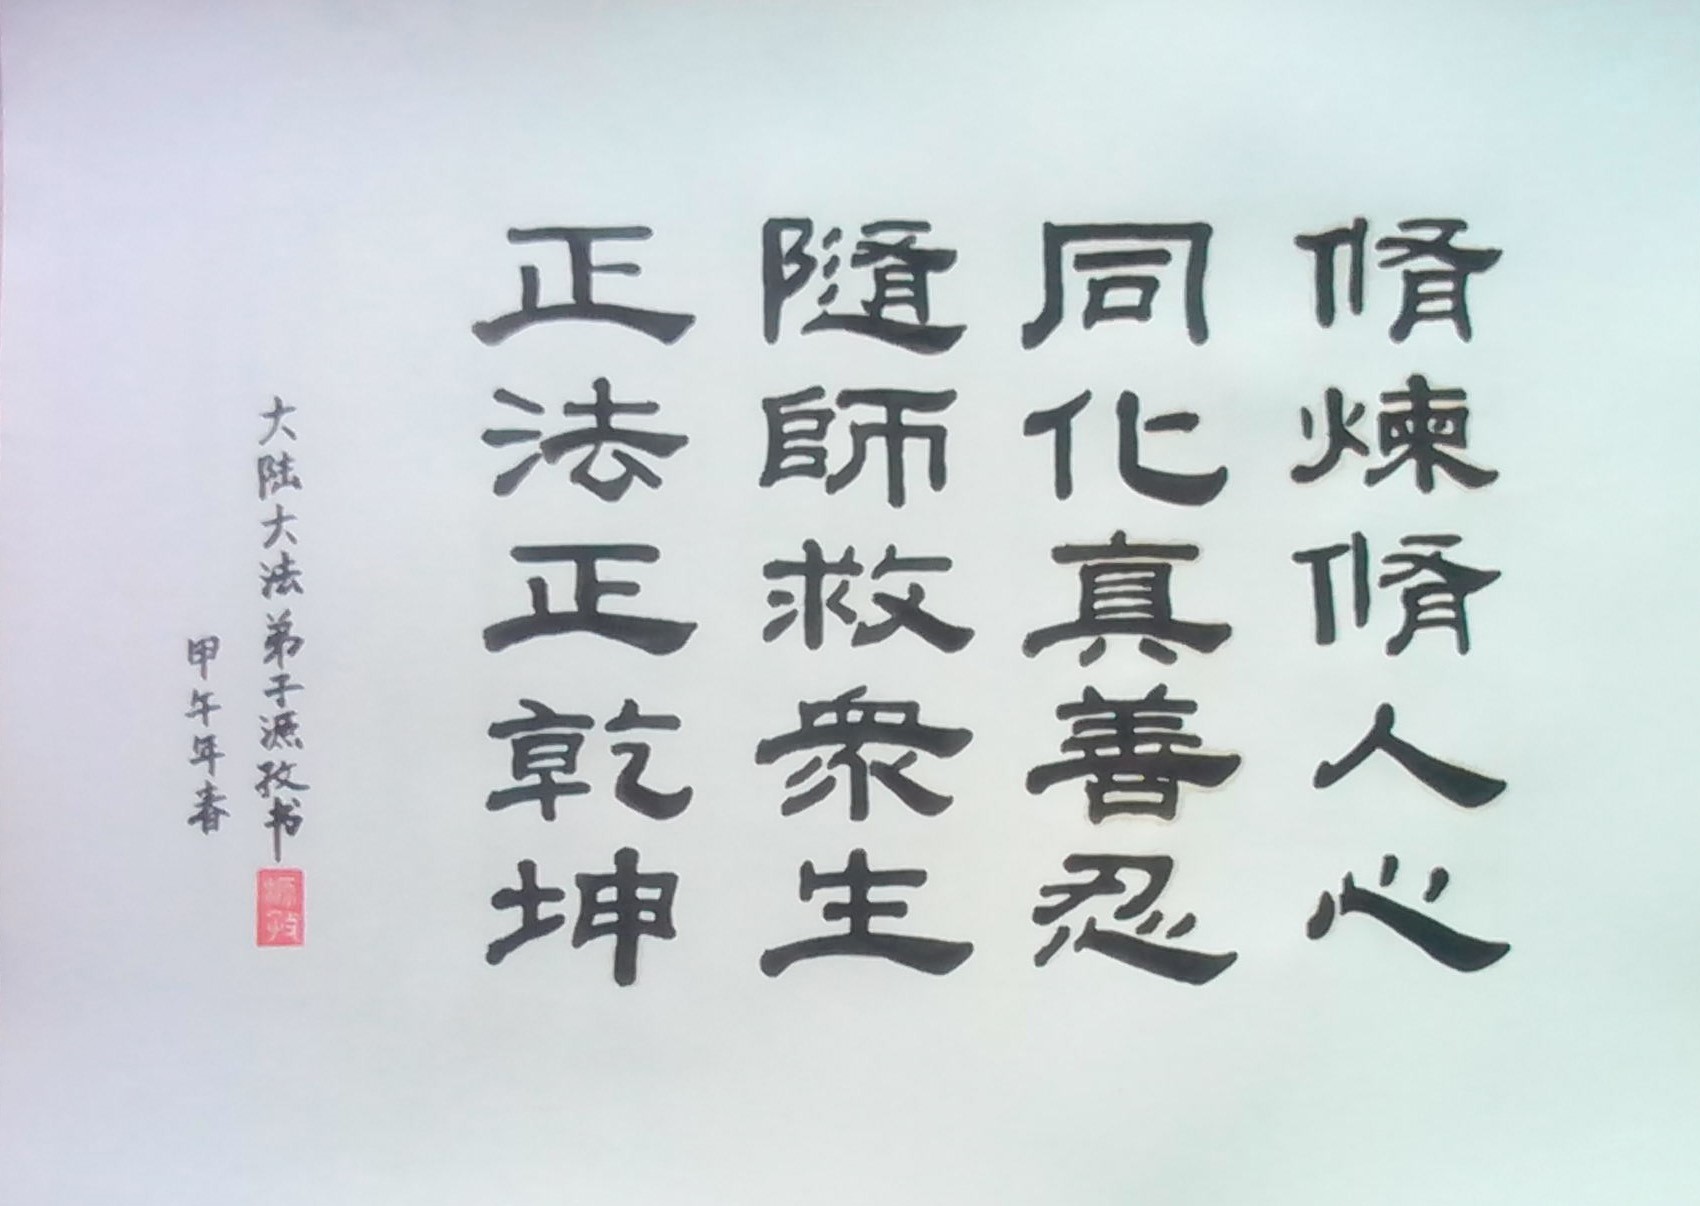 脩煉脩人心
同化真善忍
隨師救衆生
正法正乾坤
大陆大法弟子源孜书
甲午年春
源孜